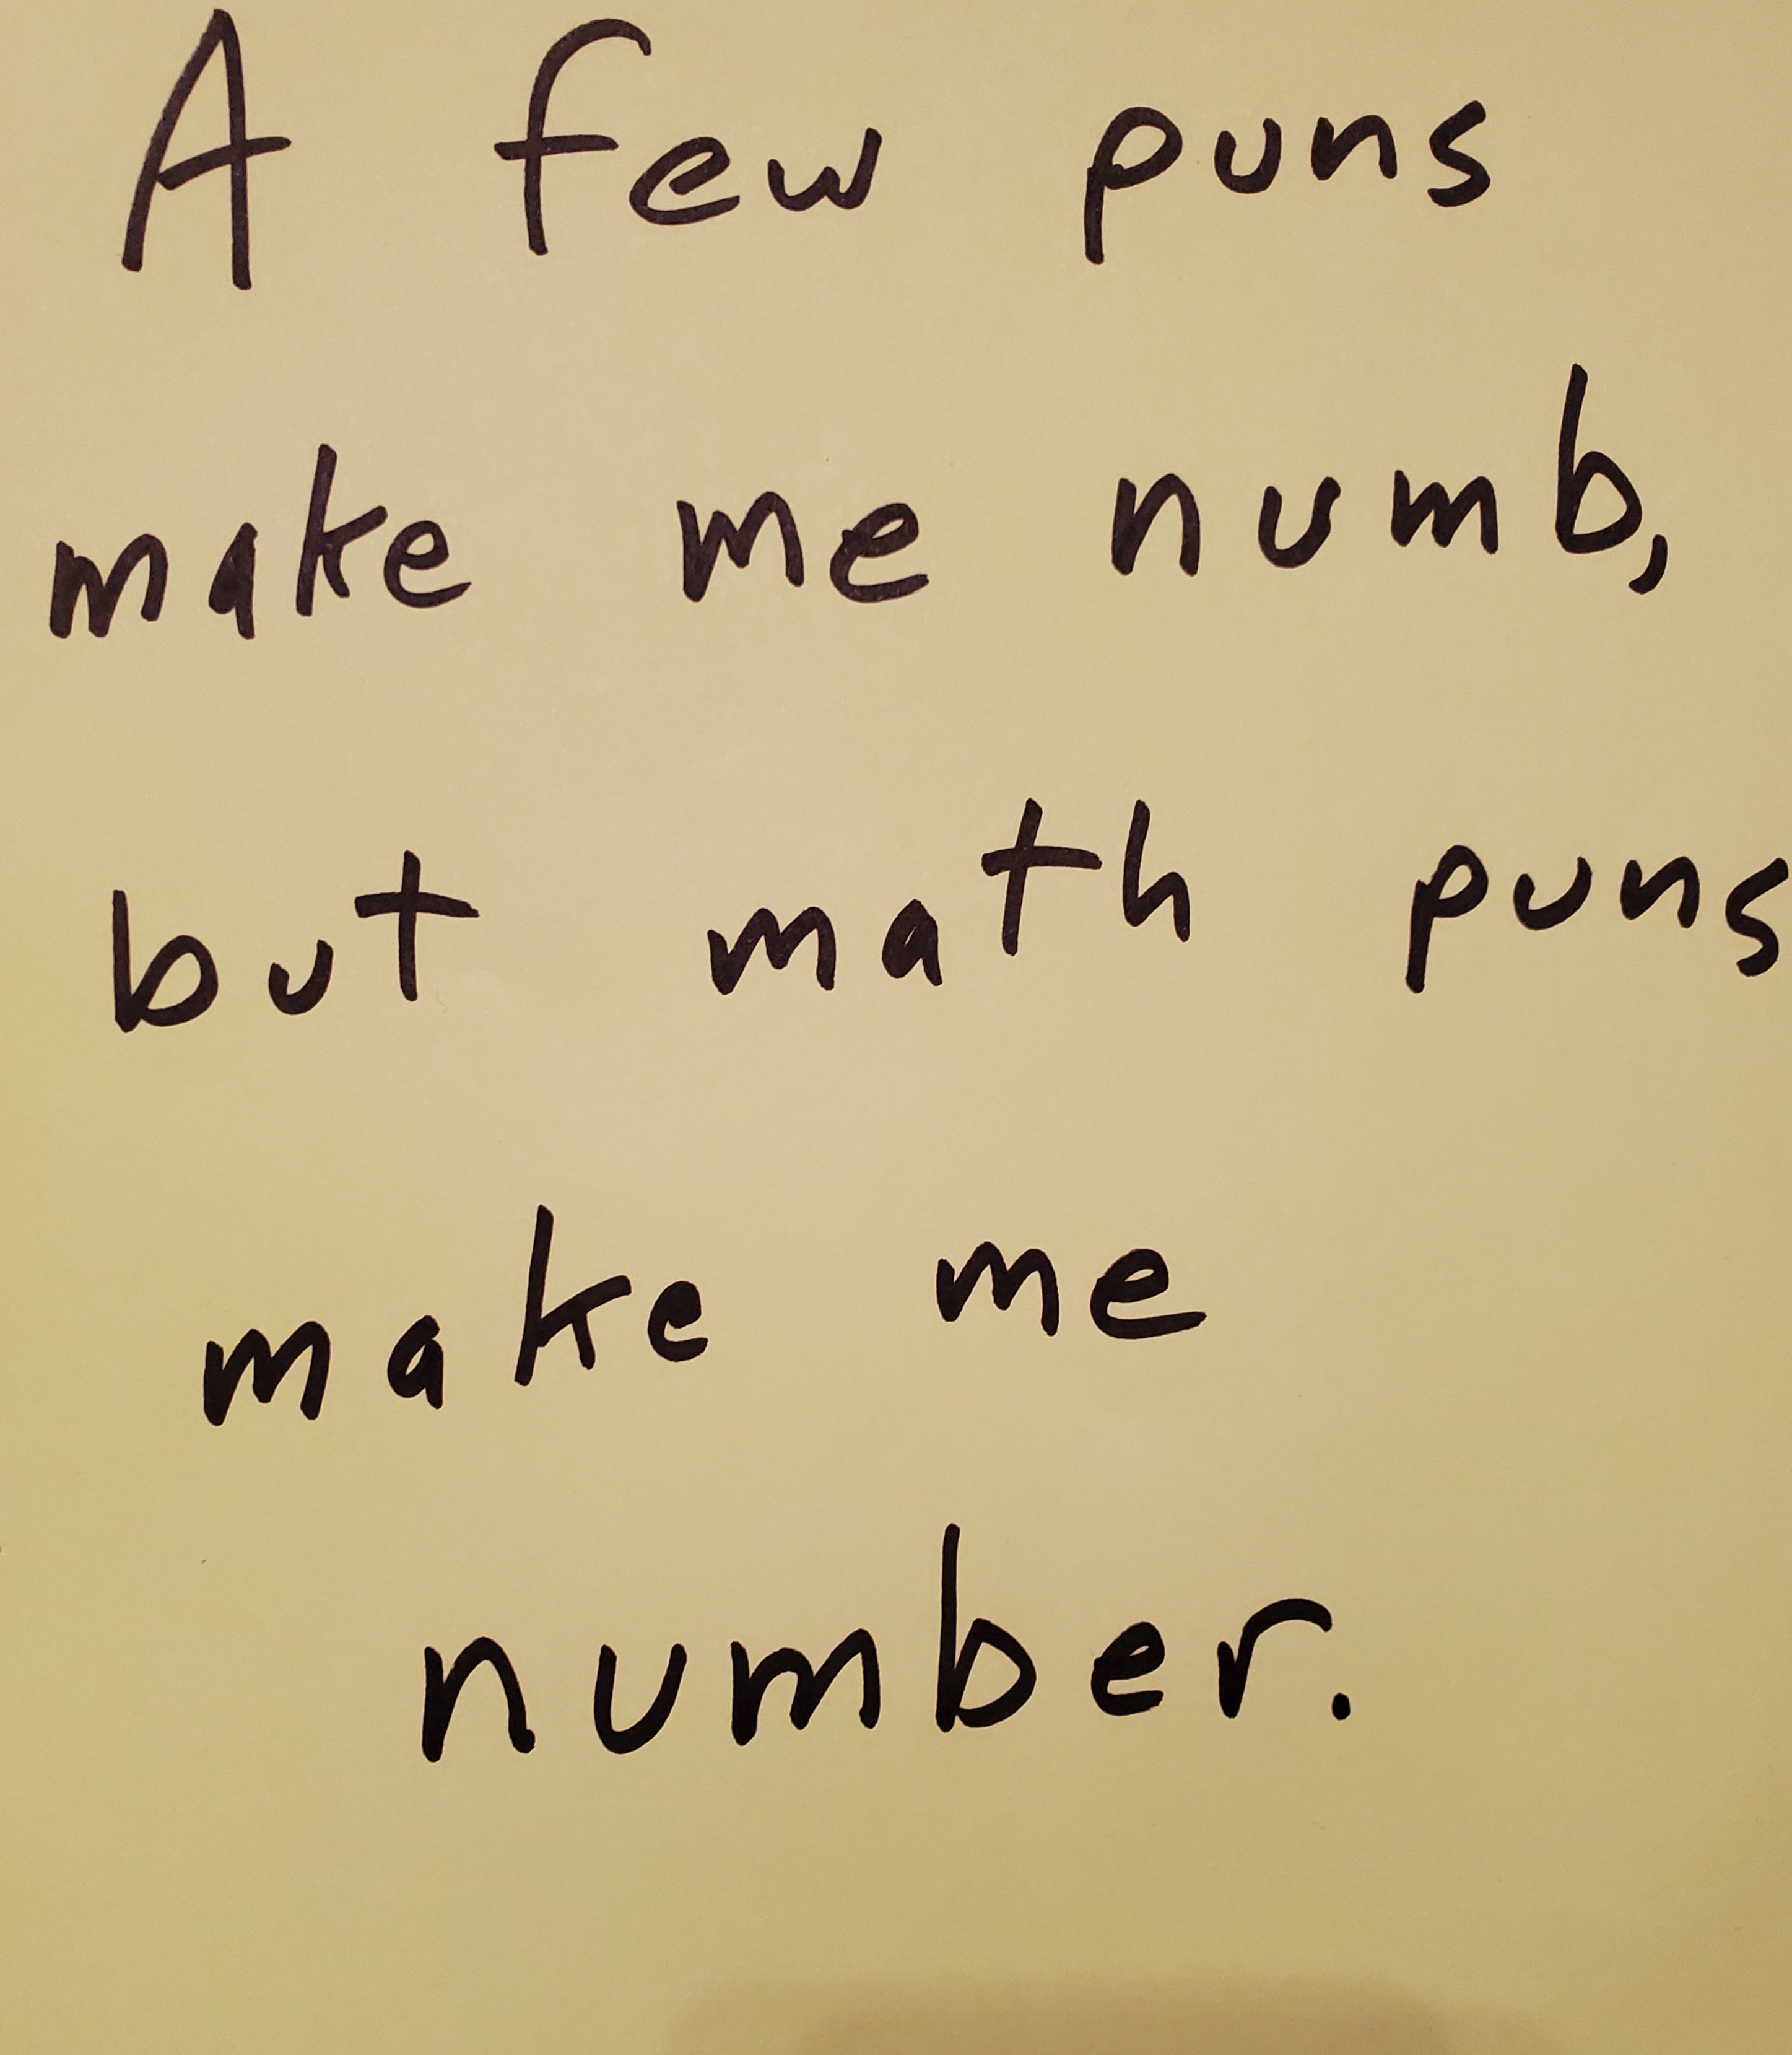 A few puns
make me numb,
but math puns
make me
number.